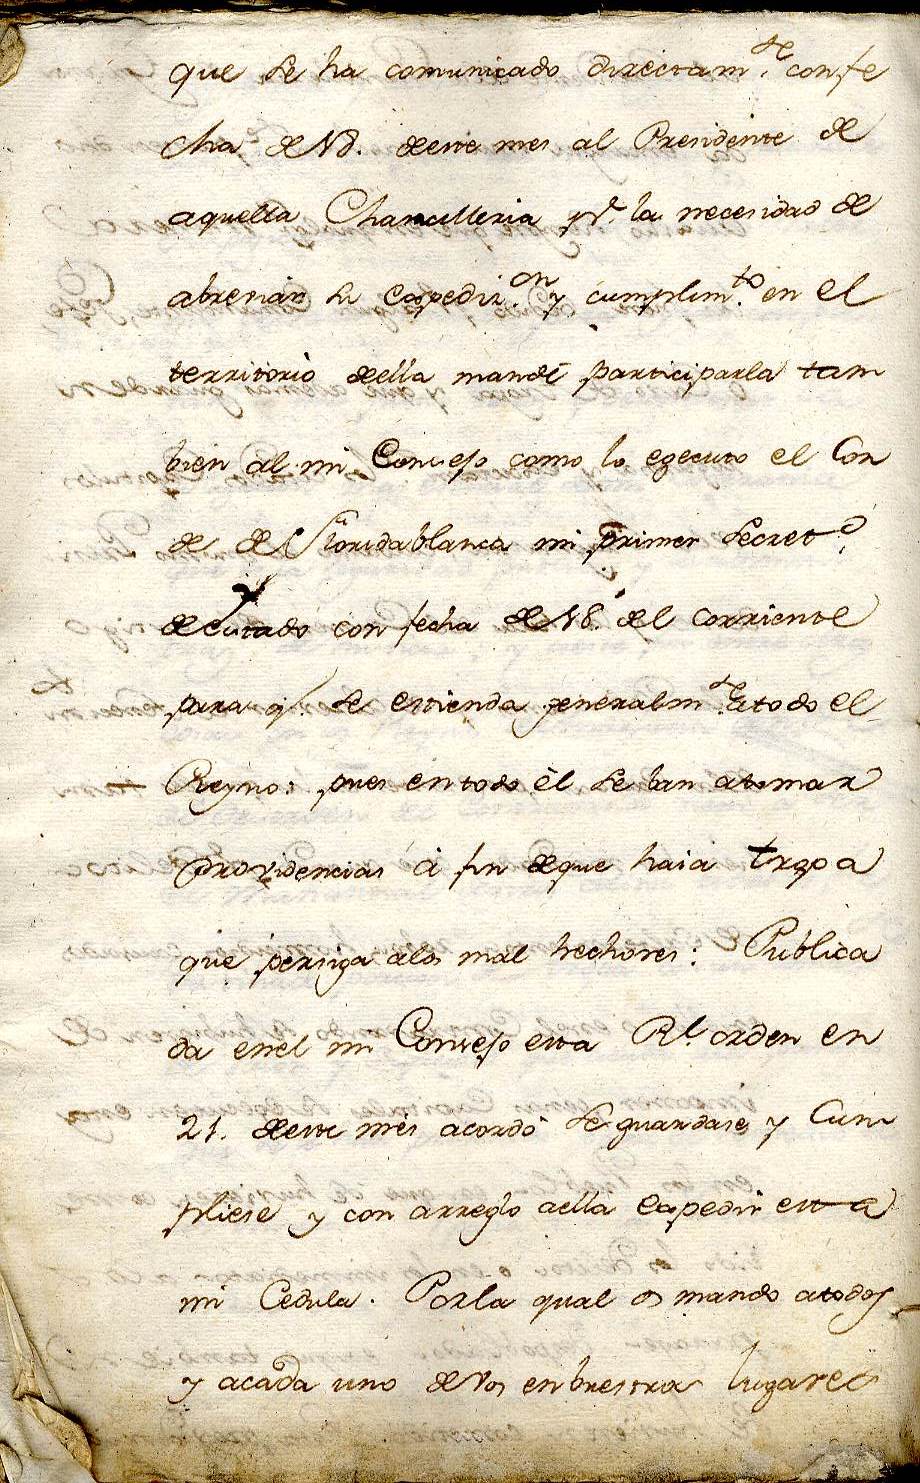 que se ha comunicado directam.te con fe
cha de 18. deste mes al Presidente de
aquella Chancilleria pr. la necesidad de
abreviar su expediz.on y cumplim.to en el
territorio della mandè participarla tam
bien al mi Consejo como lo egecuto el Con
de de Floridablanca mi primer Secret.o
de Estado con fecha de 18. del corriente
para q.e se estienda generalm.te a todo el
Reyno: pues en todo èl se ban a tomar
providencias á fin de que haia tropa
que persiga a los mal hechores: Publica
da en el mi Consejo esta Rl. orden en
21. deste mes acordó se guardase y Cum
pliese y con arreglo a ella expedir esta
mi Cedula. Por la qual os mando a todos
y a cada uno de vos en buestros lugares